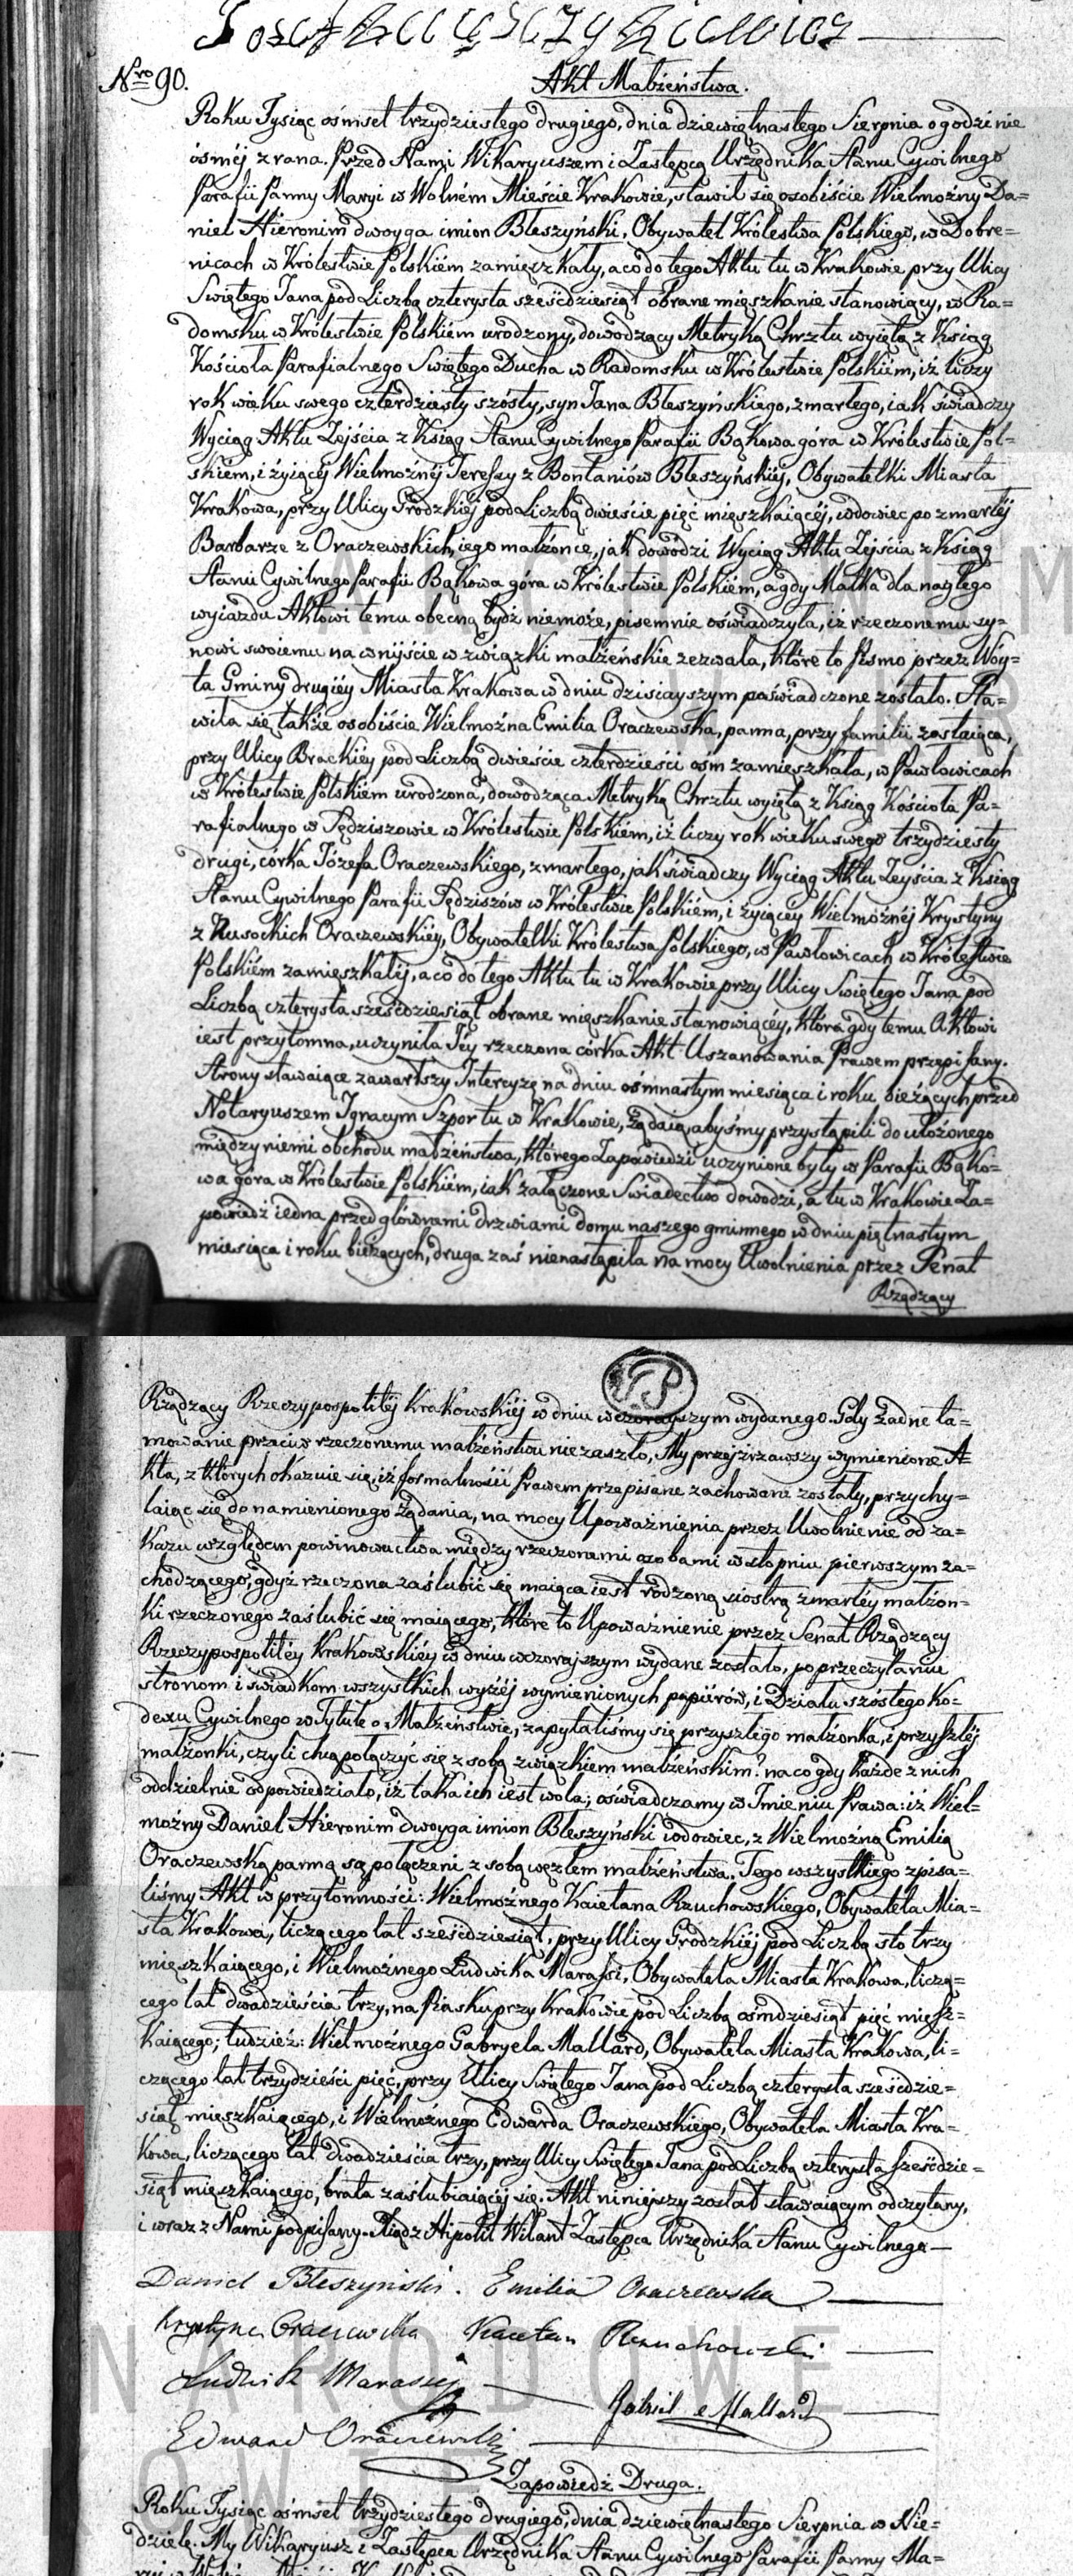 Nro 90.
Akt Małżeństwa.
Roku Tysiąc ośmset trzydziestego drugiego, dnia dziewiętnastego Sierpnia o godzinie
ósméj z rana. Przed Nami Wikaryuszem i Zastępcą Urzędnika Stanu Cywilnego
Parafii Panny Maryi w Wolném Mieście Krakowie, stawił się osobiście Wielmożny Da=
niel Hieronim dwoyga imion Błeszyński, Obywatel Królestwa Polskiego, w Dobre=
nicach w Królestwie Polskiém zamieszkały, a co do tego Aktu tu w Krakowie przy Ulicy
Swiętego Jana pod Liczbą czterysta sześćdziesiąt obrane mięszkanie stanowiący, w Ra=
domsku w Królestwie Polskiém urodzony, dowodzący Metryką Chrztu wyjętą z Ksiąg
Kościoła Parafialnego Swiętego Ducha w Radomsku w Królestwie Polskiém, iż liczy
rok wieku swego czterdziesty szósty, syn Jana Błeszyńskiego, zmarłego, iak świadczy
Wyciąg Aktu Zejścia z Ksiąg Stanu Cywilnego Parafii Bąkowa góra w Królestwie Pol=
skiém, i żyiącéj Wielmożnéj Teressy z Bontaniów Błeszyńskiéj, Obywatelki Miasta
Krakowa, przy Ulicy Grodzkiéj pod Liczbą dwieście pięć mięszkaiącéj, wdowiec po zmarłéj
Barbarze z Oraczewskich, iego małżonce, jak dowodzi Wyciąg Aktu Zejścia z Ksiąg
Stanu Cywilnego Parafii Bąkowa góra w Królestwie Polskiém, a gdy Matka dla nagłego
wyjazdu Aktowi temu obecną bydź niemoże, pisemnie oświadczyła, iż rzeczonemu sy=
nowi swoiemu na wnijście w związki małżeńskie zezwala, które to Pismo przez Wóy=
ta Gminy drugiéy Miasta Krakowa w dniu dzisiayszym poświadczone zostało. Sta=
wiła się także osobiście Wielmożna Emilia Oraczewska, panna, przy familii zostaiąca,
przy Ulicy Brackiéy pod Liczbą dwieście czterdzieści ośm zamięszkała, w Pawłowicach
w Królestwie Polskiém urodzona, dowodząca Metryką Chrztu wyjętą z Ksiąg Kościoła Pa=
rafialnego w Sędziszowie w Królestwie Polskiém, iż liczy rok wieku swego trzydziesty
drugi, córka Józefa Oraczewskiego, zmarłego, jak świadczy Wyciąg Aktu Zeyścia z Ksiąg
Stanu Cywilnego Parafii Sędziszów w Królestwie Polskiém, i żyiącéy Wielmożnéj Krystyny
z Russockich Oraczewskiéy, Obywatelki Królestwa Polskiego, w Pawłowicach w Królestwie
Polskiém zamieszkałéj, a co do tego Aktu tu w Krakowie przy Ulicy Swiętego Jana pod
Liczbą czterysta sześćdziesiąt obrane mięszkanie stanowiącéy, która gdy temu Aktowi
iest przytomna, uczyniła Jéy rzeczona córka Akt Uszanowania Prawem przepisany.
Strony stawaiące zawartszy Intercyzę na dniu ośmnastym miesiąca i roku bieżących, przed
Notaryuszem Ignacym Szpor tu w Krakowie, żądaią abyśmy przystąpili do ułożonego
między niemi obchodu małżeństwa, którego Zapowiedzi uczynione były w Parafii Bąko=
wa góra w Królestwie Polskiém, iak załączone Swiadectwo dowodzi, a tu w Krakowie Za=
powiedź iedna przed głównemi drzwiami domu naszego gminnego w dniu piętnastym
miesiąca i roku bieżących, druga zaś nienastąpiła na mocy Uwolnienia przez Senat
Rządzący
Rządzący Rzeczypospolitéj Krakowskiéj w dniu wczorayszym wydanego. Gdy żadne ta=
mowanie przeciw rzeczonemu małżeństwu niezaszło, My przejźrzawszy wymienione A=
kta, z których okazuie się, iż formalności Prawem przepisane zachowane zostały, przychy=
laiąc się do namienionego żądania, na mocy Upoważnienia przez Uwolnienie od za=
kazu względem powinowactwa między rzeczonemi osobami w stopniu pierwszym za=
chodzącego, gdyż rzeczona zaślubić się maiąca iest rodzoną siostrą zmarłéy małżon=
ki rzeczonego zaślubić się maiącego, które to Upoważnienie przez Senat Rządzący
Rzeczypospolitéy Krakowskiéy w dniu wczorajszym wydane zostało, po przeczytaniu
stronom i świadkom wszystkich wyżéj wymienionych papiérów, i Działu szóstego Ko=
dexu Cywilnego w Tytule o Małżeństwie, zapytaliśmy się przyszłego małżonka, i przyszłéj
małżonki, czyli chcą połączyć się z sobą związkiem małżeńskim? na co gdy każde z nich
oddzielnie odpowiedziało, iż taka ich iest wola; oświadczamy w Imieniu Prawa: iż Wiel=
możny Daniel Hieronim dwoyga imion Błeszyński wdowiec, z Wielmożną Emilią
Oraczewską panną są połączeni z sobą węzłem małżeństwa. Tego wszystkiego spisa=
liśmy Akt w przytomności: Wielmożnego Kaietana Rzuchowskiego, Obywatela Mia=
sta Krakowa, liczącego lat sześćdziesiąt, przy Ulicy Grodzkiéj pod Liczbą sto trzy
mięszkaiącego, i Wielmożnego Ludwika Marassi, Obywatela Miasta Krakowa, liczą=
cego lat dwadzieścia trzy, na Piasku przy Krakowie pod Liczbą ośmdziesiąt pięć miesz=
kaiącego; tudzież: Wielmożnego Gabryela Mallard, Obywatela Miasta Krakowa, li=
czącego lat trzydzieści pięć, przy Ulicy Swiętego Jana pod Liczbą czterysta sześćdzie=
siąt mieszkaiącego, i Wielmożnego Edwarda Oraczewskiego, Obywatela Miasta Kra=
kowa, liczącego lat dwadzieścia trzy, przy Ulicy Swiętego Jana pod Liczbą czterysta sześćdzie=
siąt mieszkaiącego, brata zaślubiaiącéj się. Akt niniejszy został stawaiącym odczytany,
i wraz z Nami podpisany. Xiądz Hipolit Wilant Zastępca Urzędnika Stanu Cywilnego
Daniel Błeszynski. Emilia Oraczewska
Krystyna Oraczewska Kaietan Rzuchowski
Ludwik Marassy
Gabriel Mallard
Edward Oraczewski
Zapowiedź Druga.
Roku Tysiąc ośmset trzydziestego drugiego, dnia dziewiętnastego Sierpnia w Nie=
dzielę. My Wikaryusz i Zastępca Urzędnika Stanu Cywilnego Parafii Panny Ma=
NARODOWE